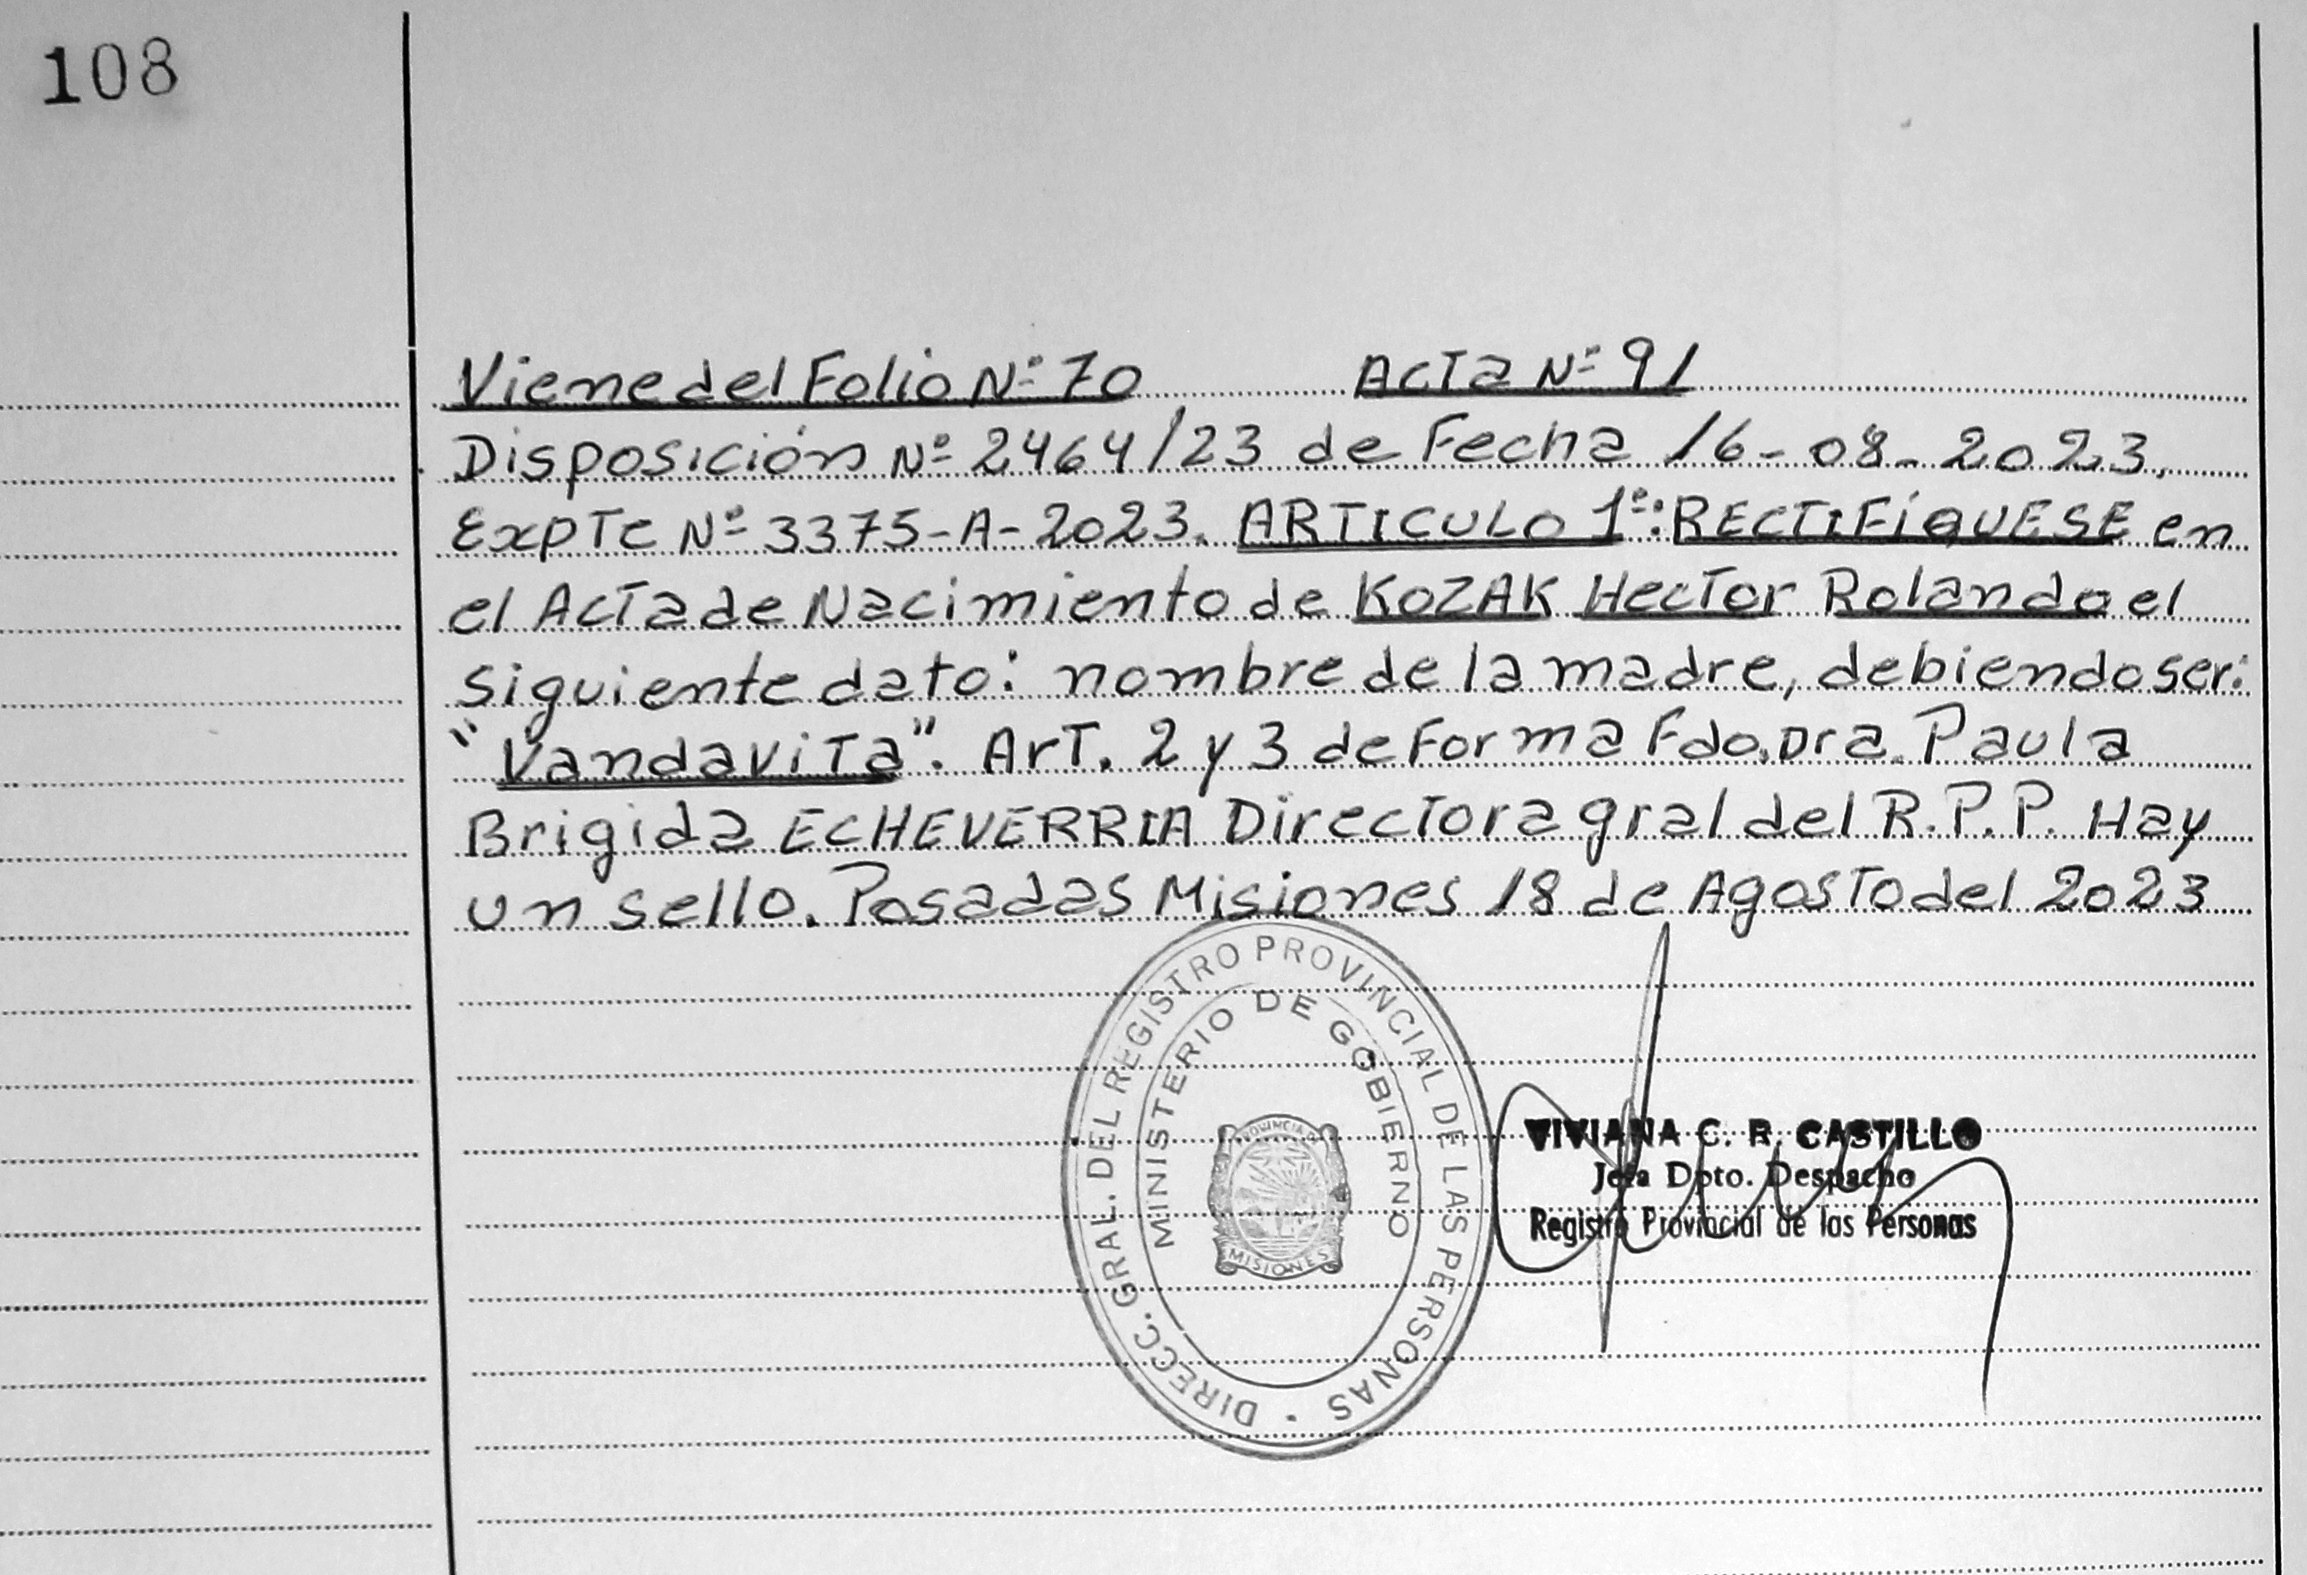 108
Viene del Folio Nº 70 Acta Nº 91
Disposición Nº 2464/23 de Fecha 16-08-2023.
Expte Nº 3375-A-2023. ARTICULO 1º: RECTIFÍQUESE en
el Acta de Nacimiento de KOZAK Hector Rolando el
siguiente dato: nombre de la madre, debiendo ser:
"Vandavita". Art. 2 y 3 de Forma Fdo. Dra. Paula
Brigida ECHEVERRIA Directora gral del R.P.P. Hay
un sello. Posadas Misiones 18 de Agosto del 2023
DIRECC. GRAL. DEL REGISTRO PROVINCIAL DE LAS PERSONAS
MINISTERIO DE GOBIERNO
PROVINCIA D
MISIONES
VIVIANA C. R. CASTILLO
Jefa Dpto. Despacho
Registro Provincial de las Personas